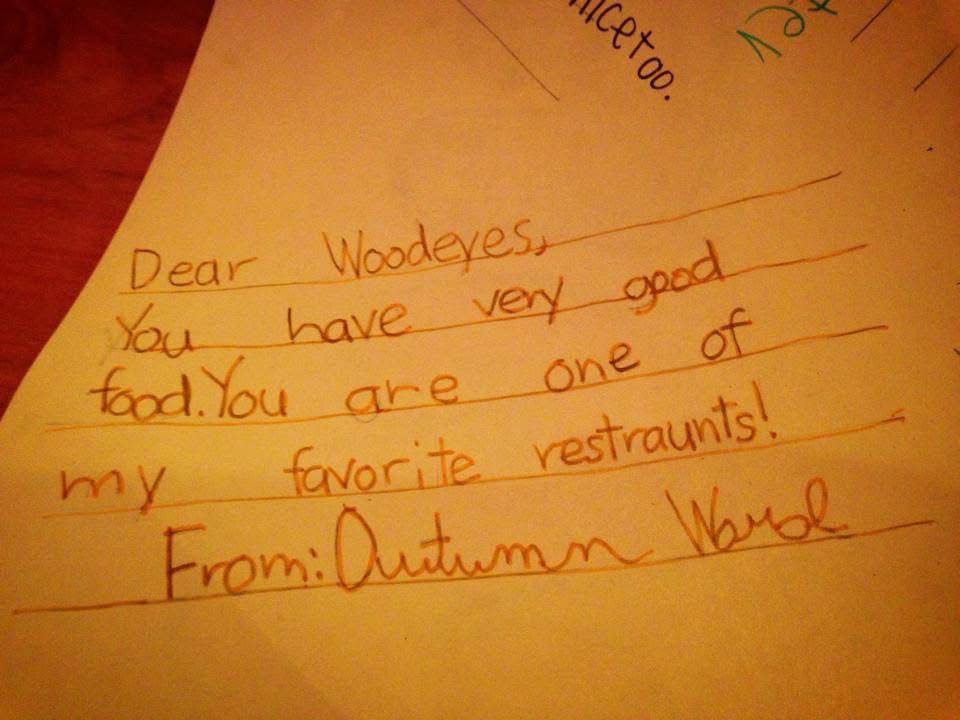 nicetoo.
Dear Woodeyes,
You have very good
food. You are one of
my favorite restraunts!
From: Autumn